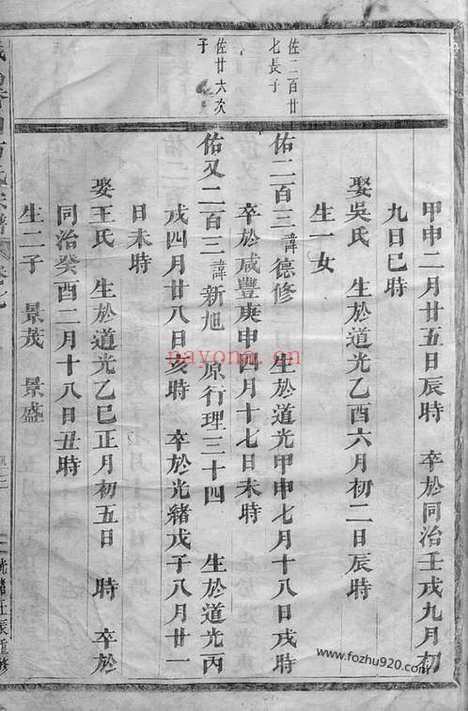 甲申二月廿五日辰時　卒於同治壬戌九月初
九日巳時
娶吳氏　生於道光乙酉六月初二日辰時
生一女
佐二百廿
七長子
佑二百三諱德修　生於道光甲申七月十八日戌時
卒於咸豐庚申四月十七日未時
佐廿六次
子
佑又二百三諱新旭　原行理三十四　生於道光丙
戌四月廿八日亥時　卒於光緒戊子八月廿一
日未時
娶王氏　生於道光乙巳正月初五日　時　卒於
同治癸酉二月十八日丑時
生二子　景茂　景盛
光緒壬辰重修
nayona.cn
www.fozhu920.com